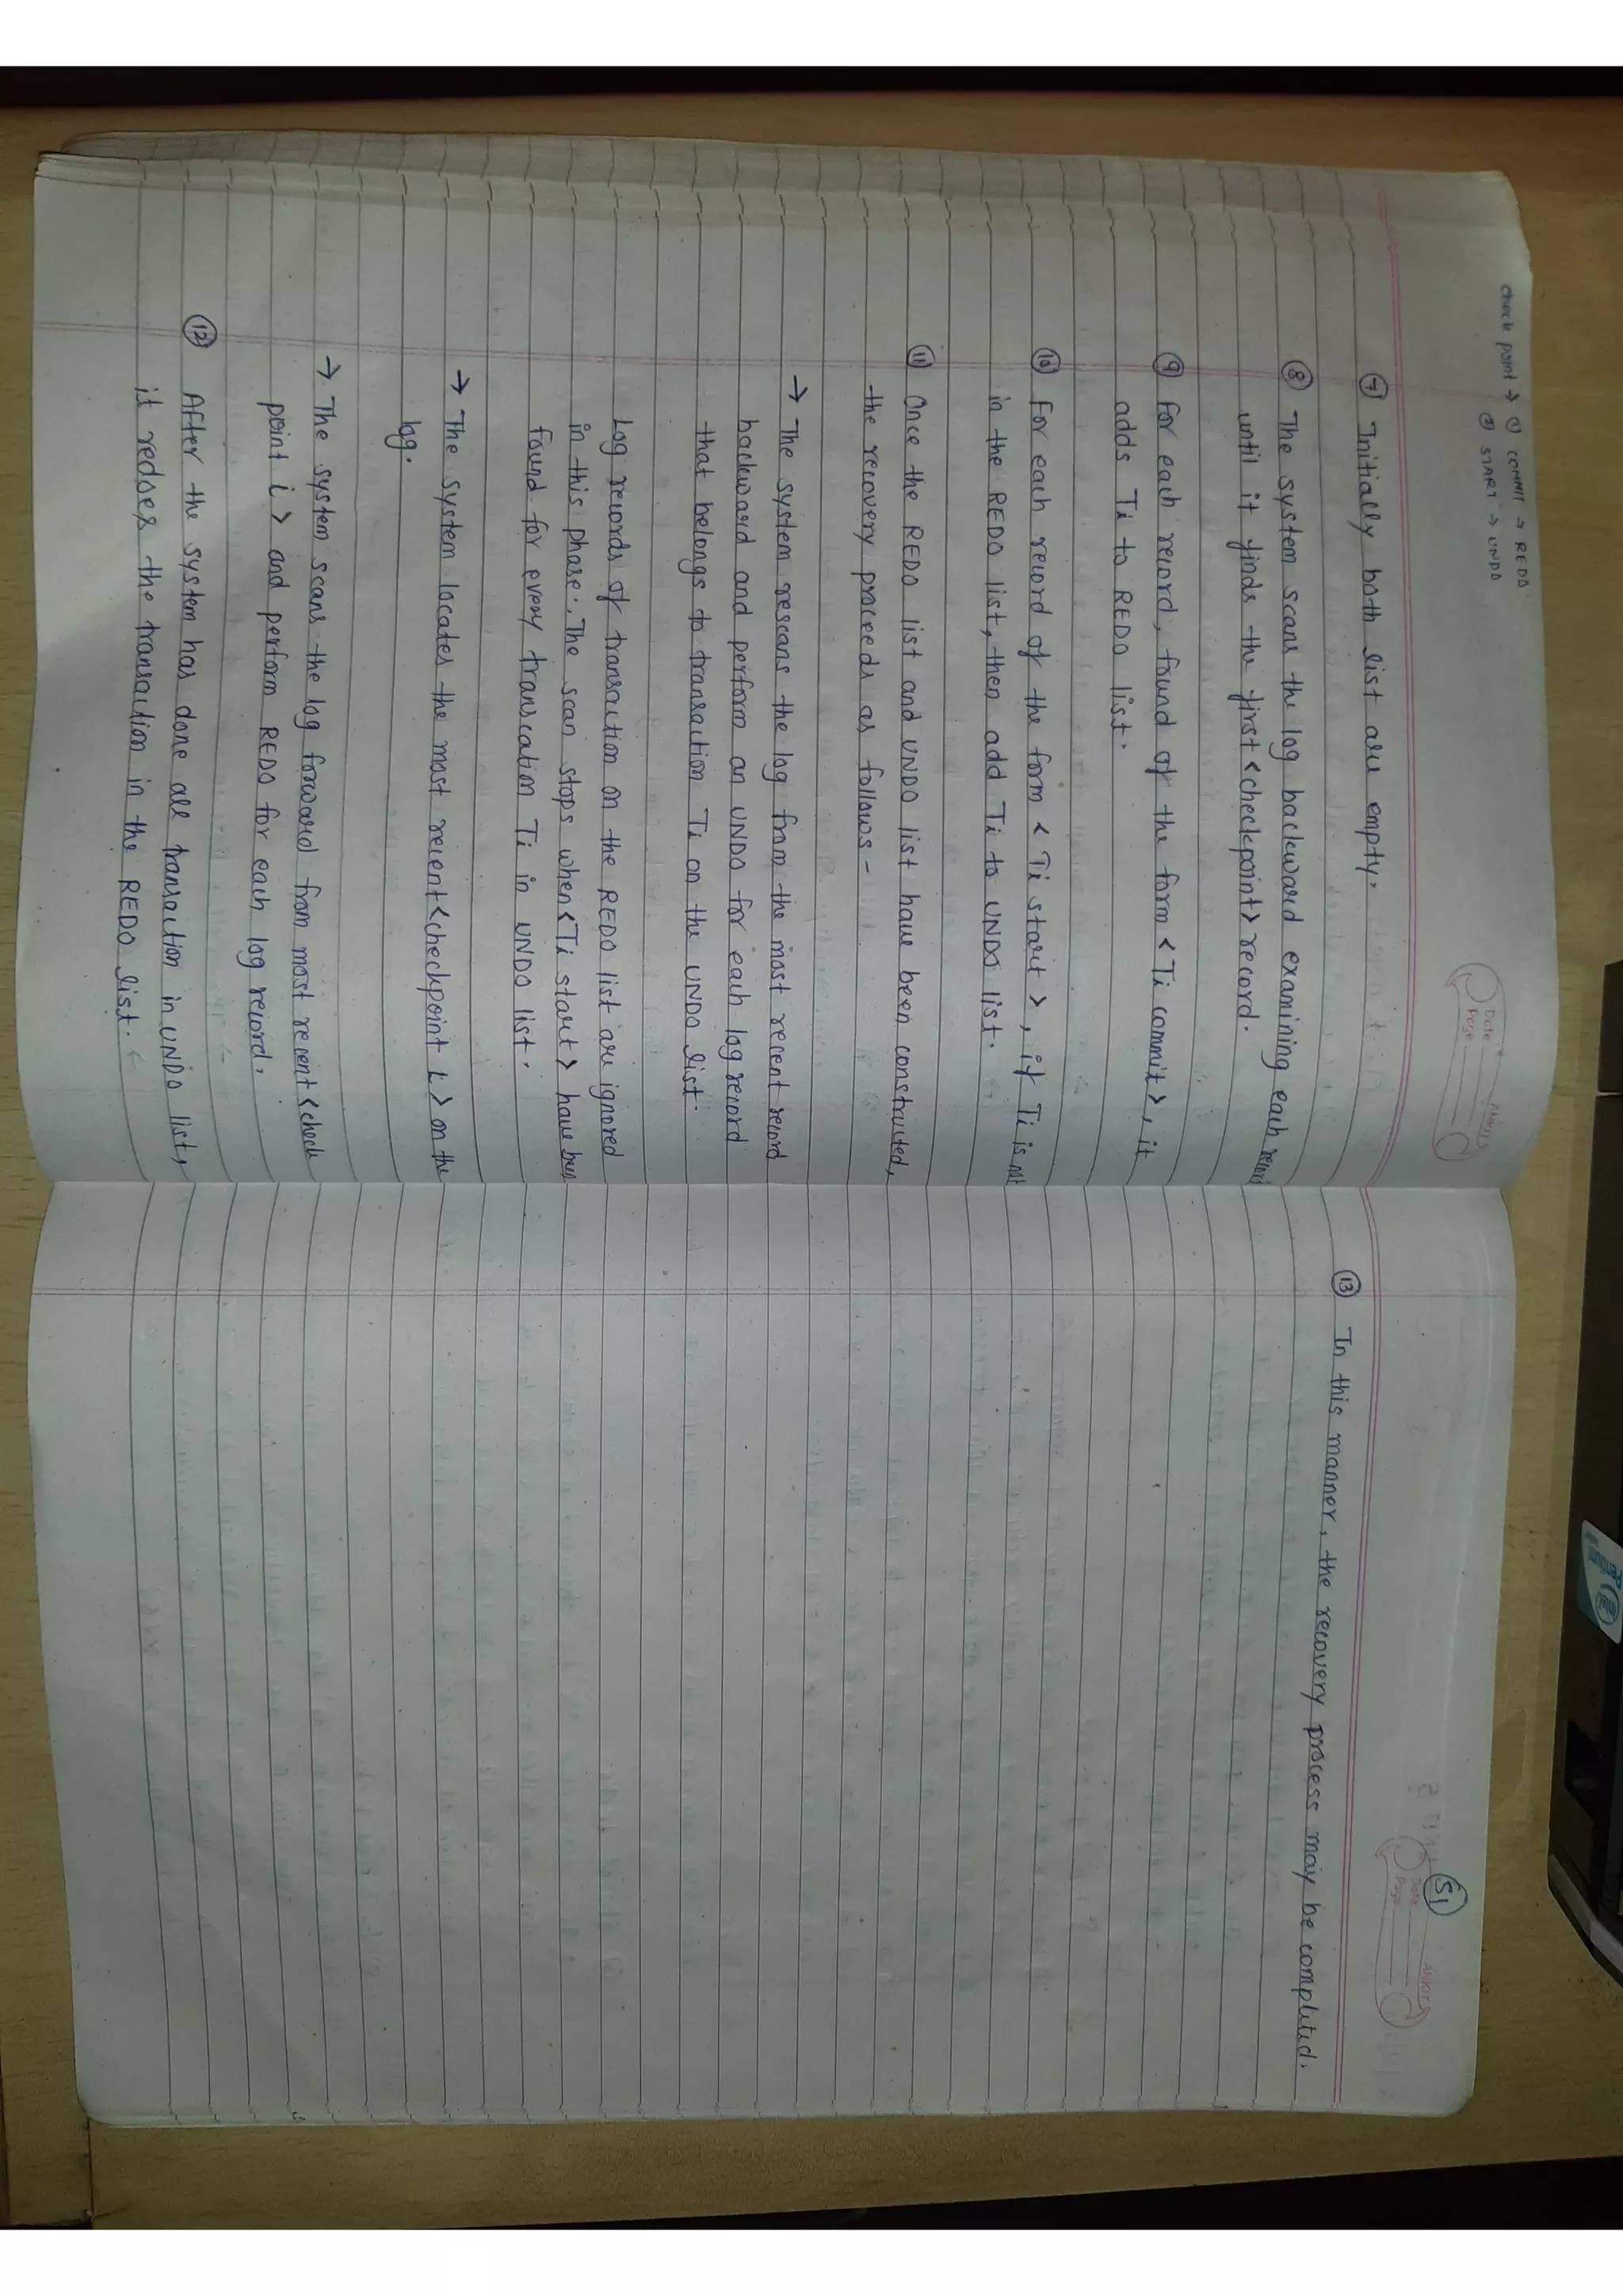 check point → ① COMMIT → REDO
② START → UNDO
Date
Page
⑦ Initially both list are empty.
⑧ The system scans the log backward examining each record
until it finds the first <checkpoint> record.
⑨ For each record, found of the form <Ti commit>, it
adds Ti to REDO list.
⑩ For each record of the form <Ti start>, if Ti is not
in the REDO list, then add Ti to UNDO list.
⑪ Once the REDO list and UNDO list have been constructed,
the recovery proceeds as follows -
→ The system rescans the log from the most recent record
backward and perform an UNDO for each log record
that belongs to transaction Ti on the UNDO list.
Log records of transaction on the REDO list are ignored
in this phase. The scan stops when <Ti start> have been
found for every transcation Ti in UNDO list.
→ The system locates the most recent <checkpoint L> on the
log.
→ The system scans the log forward from most recent <check
point i> and perform REDO for each log record.
⑫ After the system has done all transaction in UNDO list,
it redoes the transaction in the REDO list.
51
Date
Page
⑬ In this manner, the recovery process may be completed.
Pentium
intel